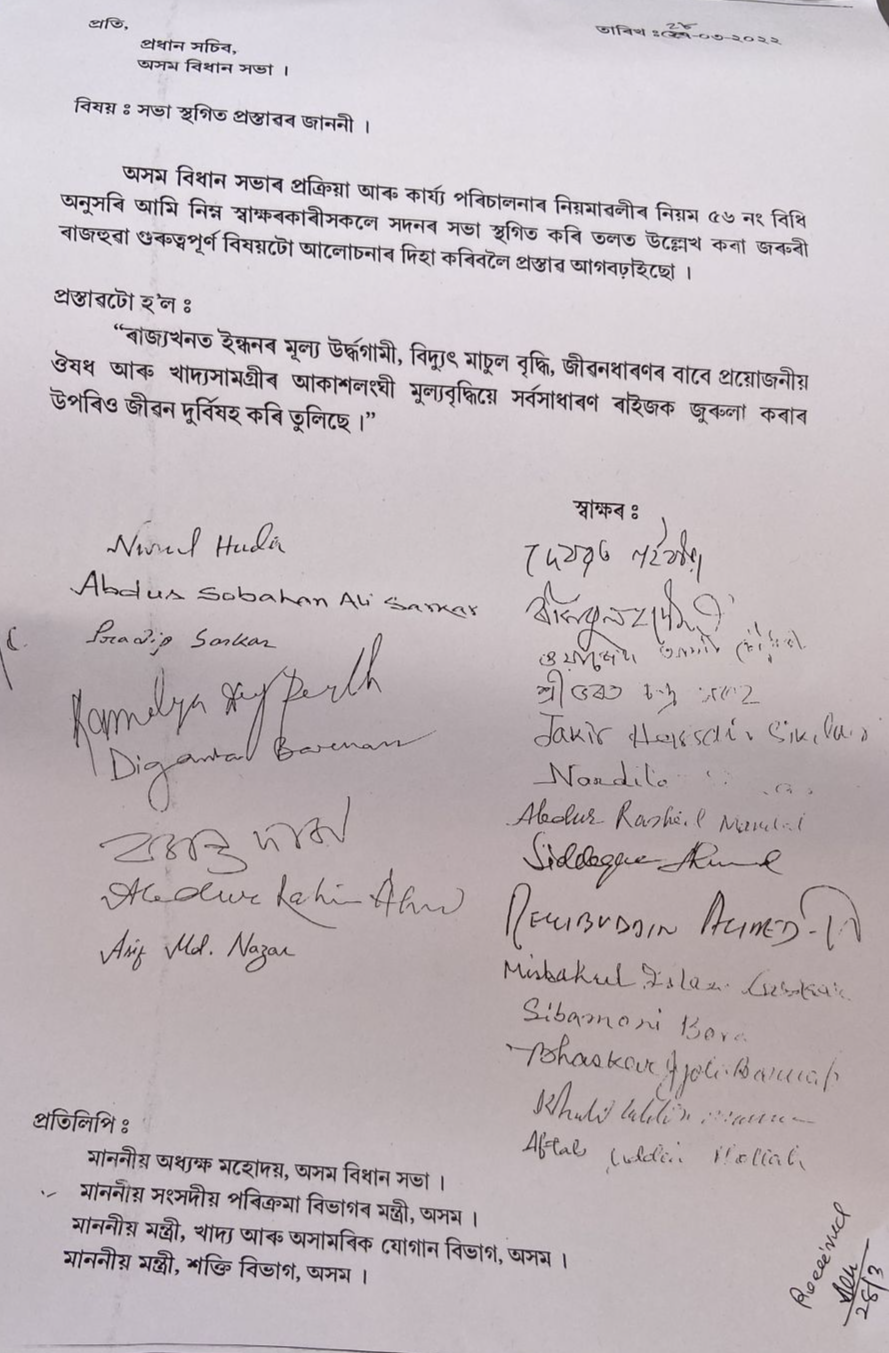 প্ৰতি,
তাৰিখ : ২৮-০৩-২০২২
প্ৰধান সচিব,
অসম বিধান সভা ।
বিষয় : সভা স্থগিত প্ৰস্তাৱৰ জাননী ।
অসম বিধান সভাৰ প্ৰক্ৰিয়া আৰু কাৰ্য্য পৰিচালনাৰ নিয়মাৱলীৰ নিয়ম ৫৬ নং বিধি
অনুসৰি আমি নিম্ন স্বাক্ষৰকাৰীসকলে সদনৰ সভা স্থগিত কৰি তলত উল্লেখ কৰা জৰুৰী
ৰাজহুৱা গুৰুত্বপূৰ্ণ বিষয়টো আলোচনাৰ দিহা কৰিবলৈ প্ৰস্তাৱ আগবঢ়াইছো ।
প্ৰস্তাৱটো হ'ল :
“ৰাজ্যখনত ইন্ধনৰ মূল্য উৰ্দ্ধগামী, বিদ্যুৎ মাচুল বৃদ্ধি, জীৱনধাৰণৰ বাবে প্ৰয়োজনীয়
ঔষধ আৰু খাদ্যসামগ্ৰীৰ আকাশলংঘী মূল্যবৃদ্ধিয়ে সৰ্বসাধাৰণ ৰাইজক জুৰুলা কৰাৰ
উপৰিও জীৱন দুৰ্বিষহ কৰি তুলিছে ।”
স্বাক্ষৰ :
Nurul Huda
Abdus Sobahan Ali Sarkar
Pradip Sarkar
Kamalya Dey Purkh
Diganta Barman
Abdur Rahim Ahmed
Asif Md. Nazar
Jakir Hussain Sikdar
Nandita
Abdur Rashid Mandal
Siddeque Ahmed
REKIBUDDIN AHMED
Misbahul Islam Laskar
Sibamoni Bora
Bhaskar Jyoti Baruah
Aftab Uddin Mollah
প্ৰতিলিপি :
মাননীয় অধ্যক্ষ মহোদয়, অসম বিধান সভা ।
মাননীয় সংসদীয় পৰিক্ৰমা বিভাগৰ মন্ত্ৰী, অসম ।
মাননীয় মন্ত্ৰী, খাদ্য আৰু অসামৰিক যোগান বিভাগ, অসম ।
মাননীয় মন্ত্ৰী, শক্তি বিভাগ, অসম ।
Received
28/3